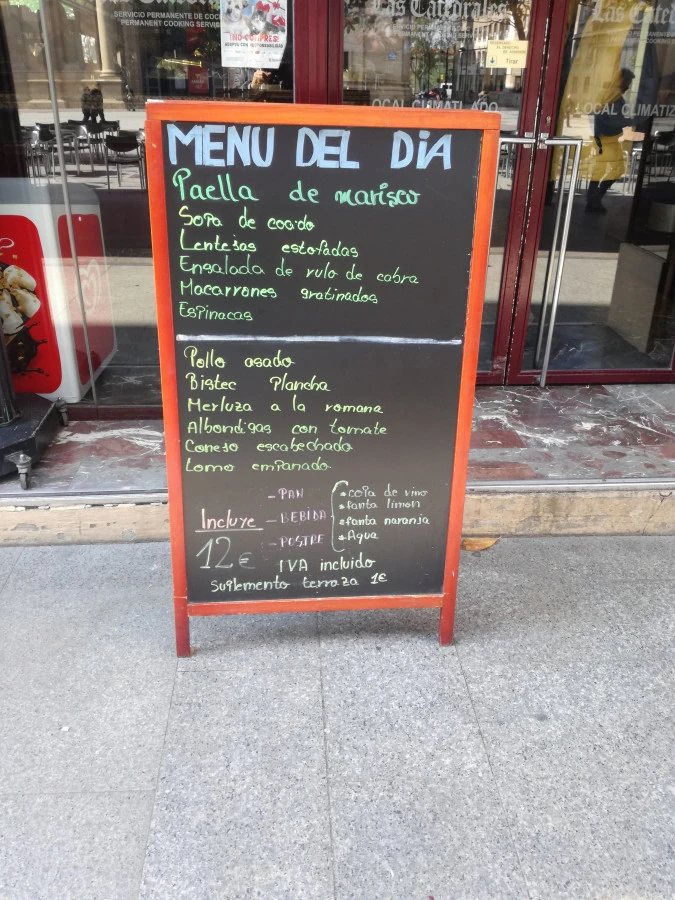 Las Catedrales
SERVICIO PERMANENTE DE COC
PERMANENT COOKING SERVI
¡NO COMPRES!
Las Catedrales
Tirar
Las Cated
LOCAL CLIMATIZADO
LOCAL CLIMATIZA
MENU DEL DiA
Paella de marisco
Sopa de cocido
Lentejas estofadas
Ensalada de rulo de cabra
Macarrones gratinados
Espinacas
Pollo asado
Bistec Plancha
Merluza a la romana
Albondigas con tomate
Conejo escabechado
Lomo empanado
Incluye
- PAN
- BEBIDA
- POSTRE
*copa de vino
*fanta limon
*fanta naranja
*Agua
12€
IVA incluido
Suplemento terraza 1€